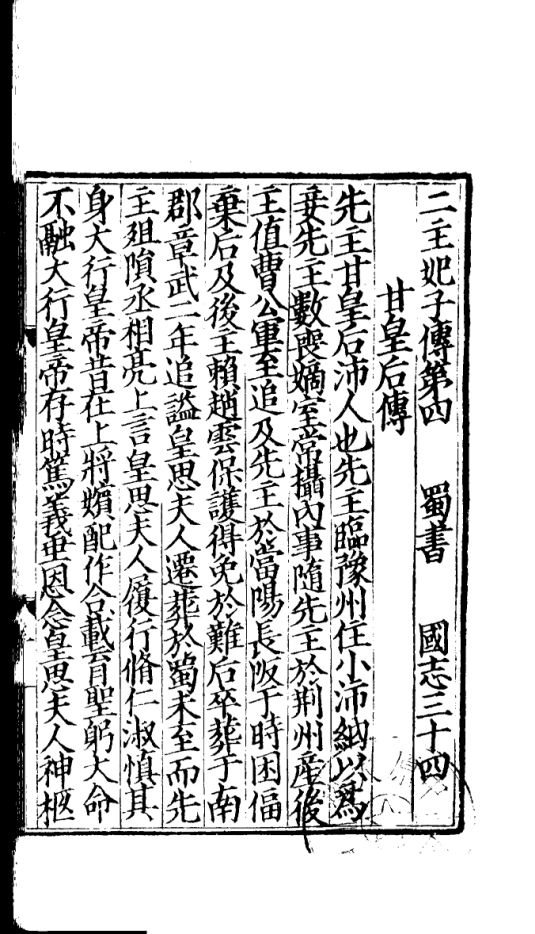 二主妃子傳第四 蜀書 國志三十四
甘皇后傳
先主甘皇后沛人也先主臨豫州住小沛納以爲
妾先主數喪嫡室常攝內事隨先主於荆州產後
主值曹公軍至追及先主於當陽長阪于時困偪
棄后及後主賴趙雲保護得免於難后卒葬于南
郡章武二年追謚皇思夫人遷葬於蜀未至而先
主殂隕丞相亮上言皇思夫人履行脩仁淑慎其
身大行皇帝昔在上將嬪配作合載育聖躬大命
不融大行皇帝存時篤義垂恩念皇思夫人神柩